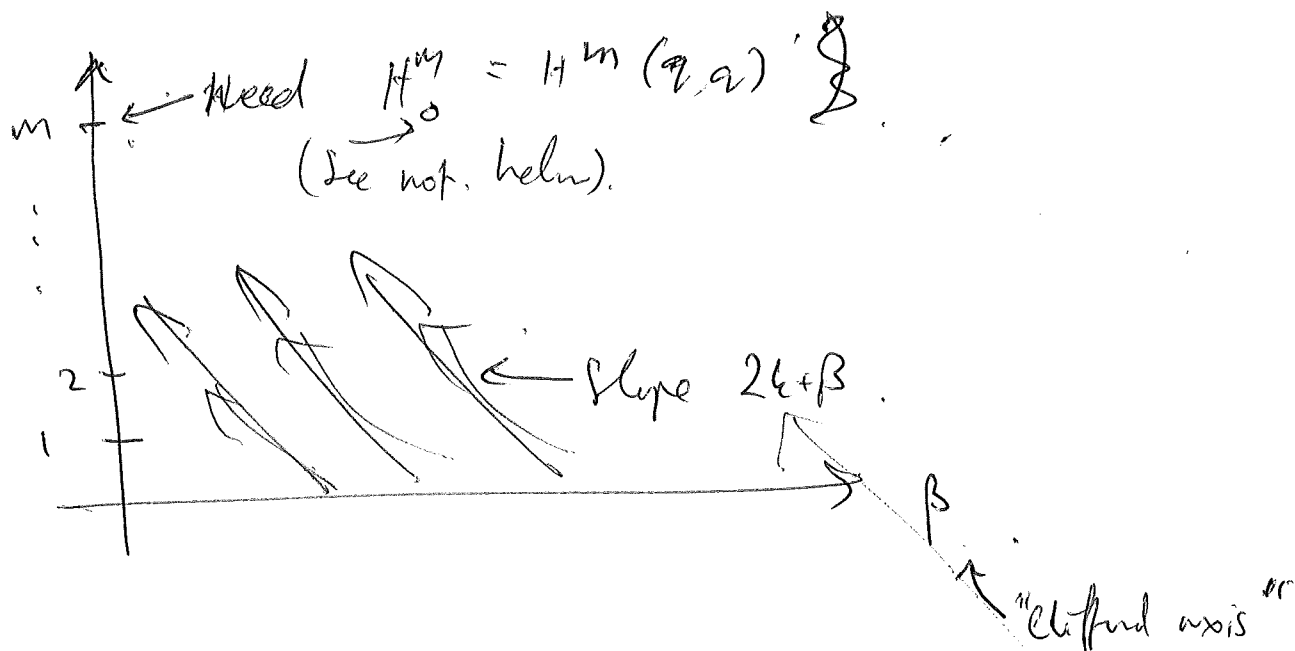 Need H^m_0 = H^m(q,q) }
m
(See not. below).
2
Slope 2ξ+β.
1
β
"Clifford axis"